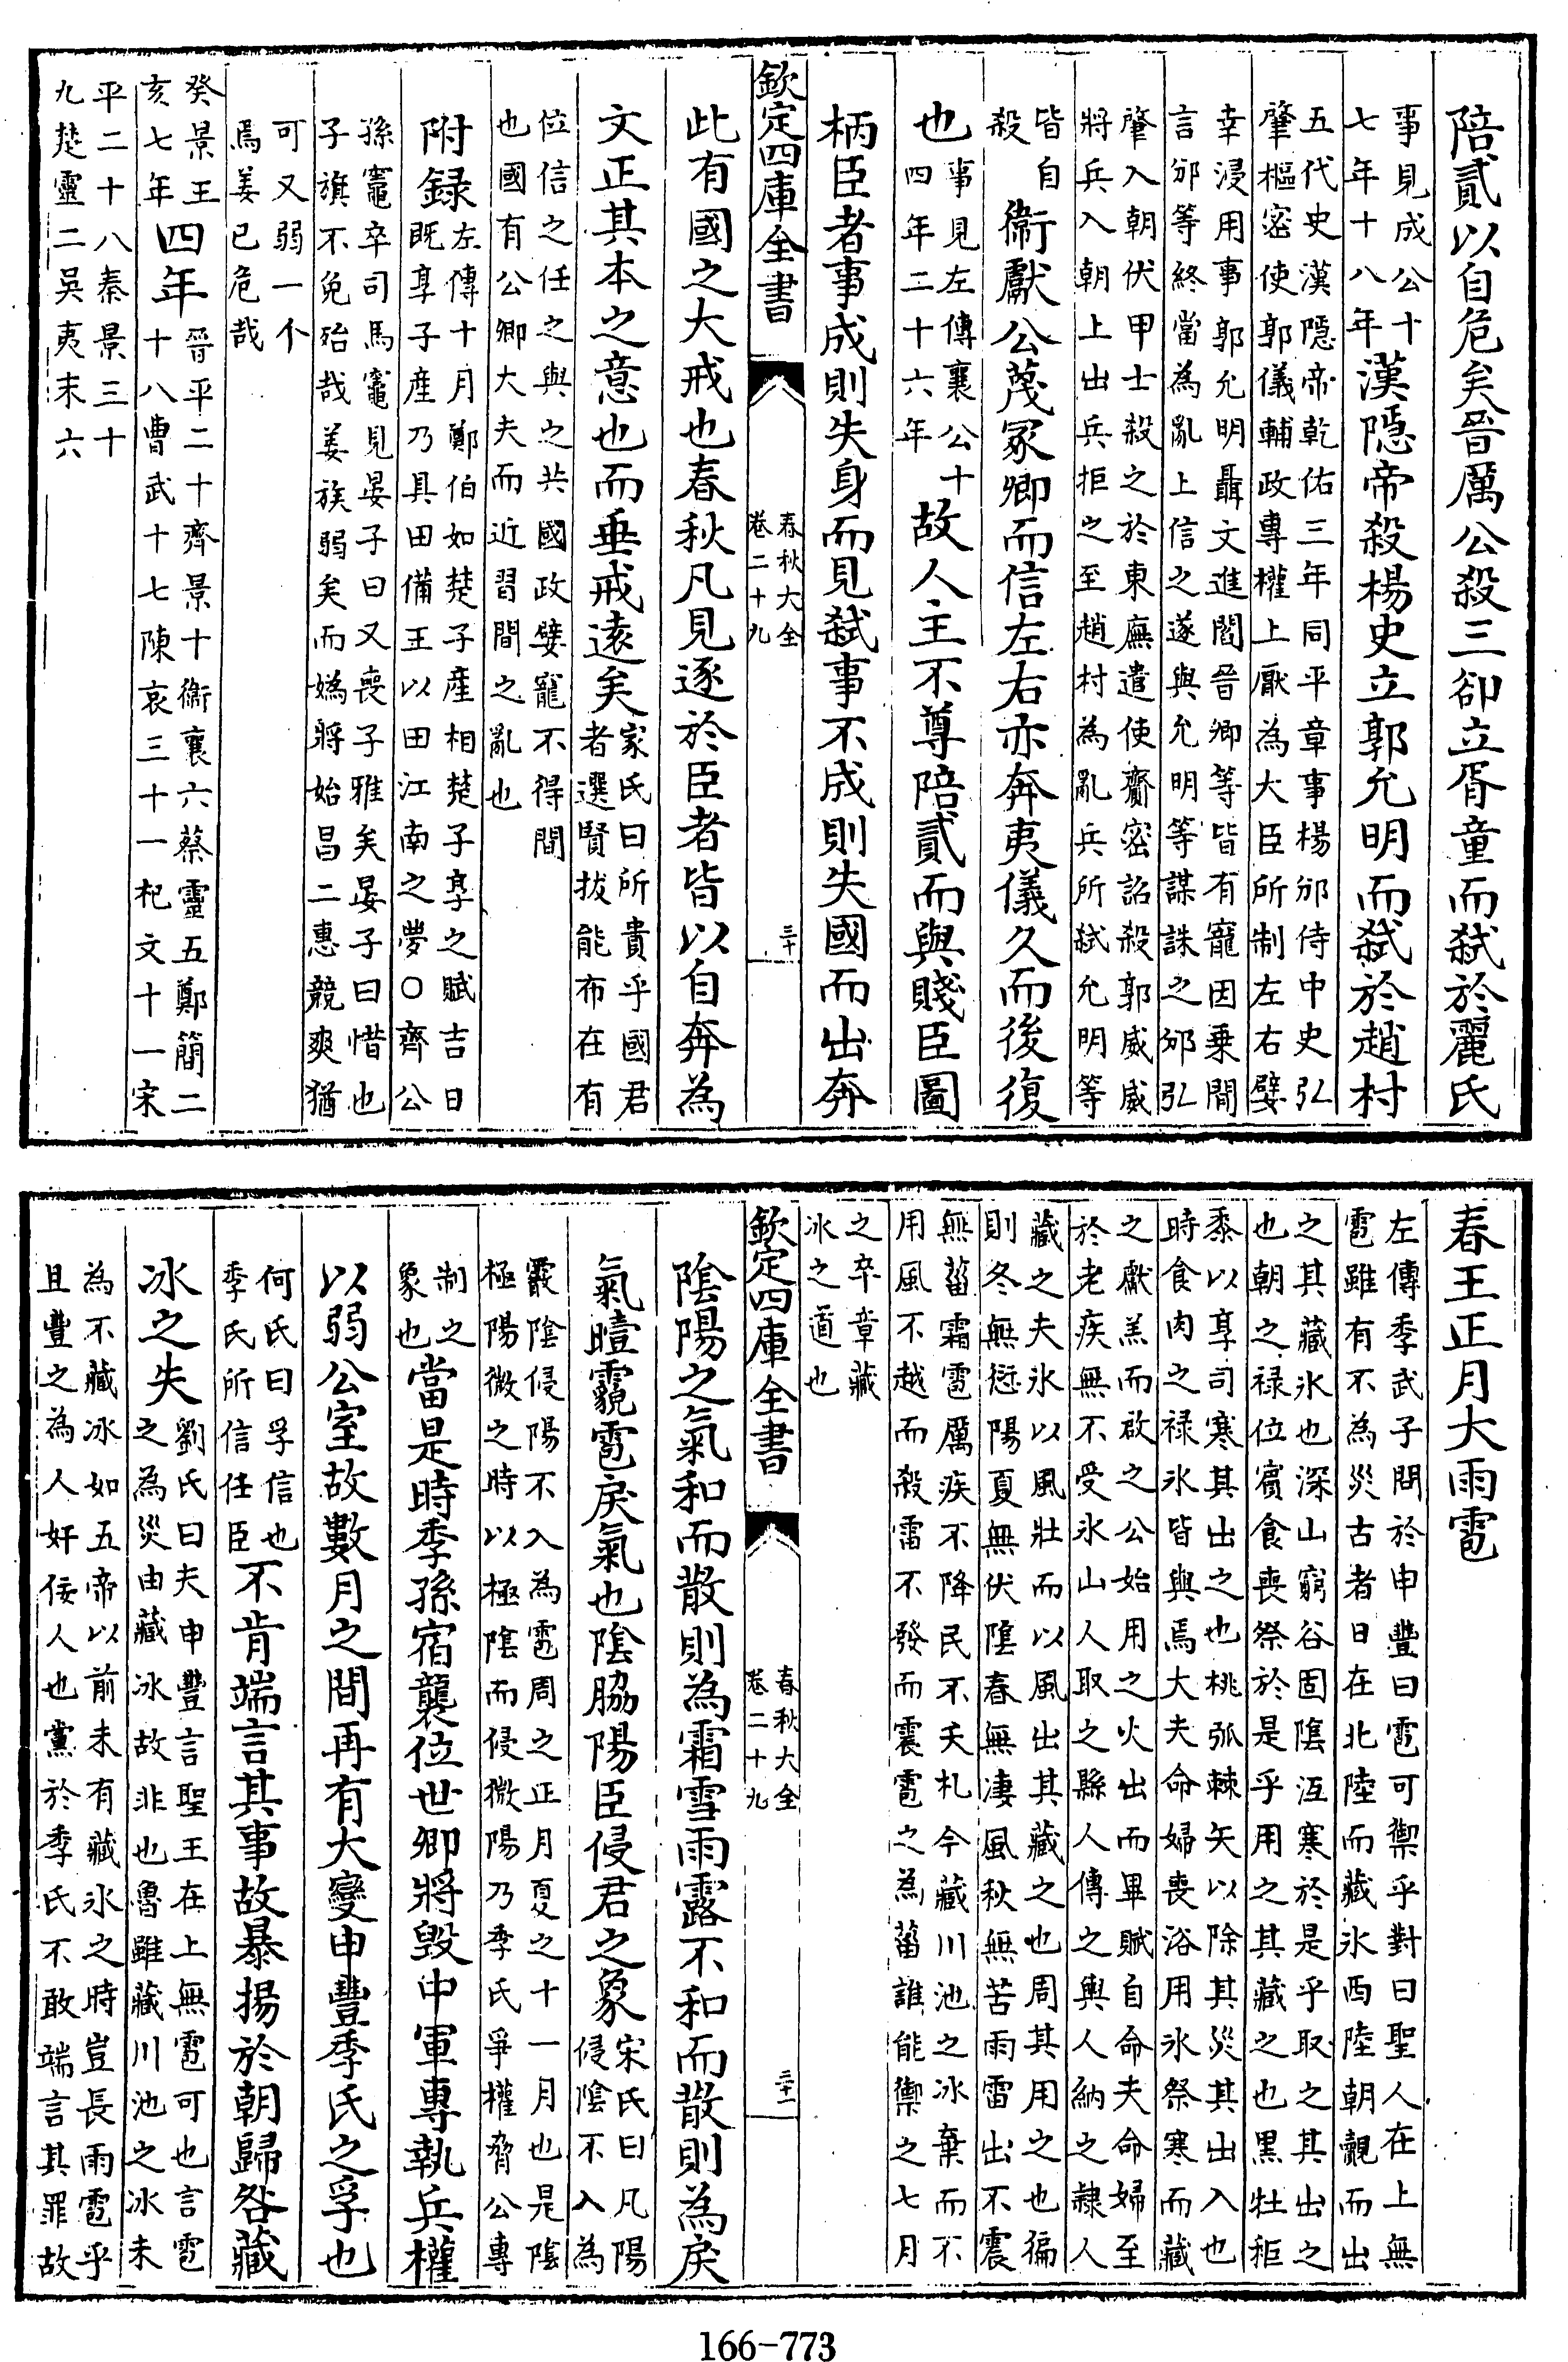 陪貳以自危矣晉厲公殺三卻立胥童而弑於麗氏
事見成公十七年十八年漢隱帝殺楊史立郭允明而弑於趙村
五代史漢隱帝乾佑三年同平章事楊邠侍中史弘
肇樞密使郭儀輔政專權上厭為大臣所制左右嬖
幸浸用事郭允明聶文進閻晉卿等皆有寵因乗間
言邠等終當為亂上信之遂與允明等謀誅之邠弘
肇入朝伏甲士殺之於東廡遣使齎密詔殺郭威威
將兵入朝上出兵拒之至趙村為亂兵所弑允明等
皆自殺衞獻公蔑冢卿而信左右亦奔夷儀久而後復
也事見左傳襄公十四年二十六年故人主不尊陪貳而與賤臣圖
柄臣者事成則失身而見弑事不成則失國而出奔
欽定四庫全書 春秋大全卷二十九 三十
此有國之大戒也春秋凡見逐於臣者皆以自奔為
文正其本之意也而垂戒逺矣家氏曰所貴乎國君者選賢拔能布在有
位信之任之與之共國政嬖寵不得間
也國有公卿大夫而近習間之亂也
附録左傳十月鄭伯如楚子産相楚子享之賦吉日既享子産乃具田備王以田江南之夢○齊公
孫竈卒司馬竈見晏子曰又喪子雅矣晏子曰惜也
子旗不免殆哉姜族弱矣而媯將始昌二惠競爽猶
可又弱一个
焉姜已危哉
癸亥景王七年四年晉平二十齊景十衞襄六蔡靈五鄭簡二十八曹武十七陳哀三十一杞文十一宋
平二十八秦景三十
九楚靈二吳夷末六
春王正月大雨雹
左傳季武子問於申豐曰雹可禦乎對曰聖人在上無
雹雖有不為災古者日在北陸而藏氷西陸朝覿而出
之其藏氷也深山窮谷固陰沍寒於是乎取之其出之
也朝之禄位賓食喪祭於是乎用之其藏之也黒牡秬
黍以享司寒其出之也桃弧棘矢以除其災其出入也
時食肉之禄氷皆與焉大夫命婦喪浴用氷祭寒而藏
之獻羔而啟之公始用之火出而畢賦自命夫命婦至
於老疾無不受氷山人取之縣人傳之輿人納之隸人
藏之夫氷以風壯而以風出其藏之也周其用之也徧
則冬無愆陽夏無伏隂春無凄風秋無苦雨雷出不震
無菑霜雹厲疾不降民不夭札今藏川池之冰棄而不
用風不越而殺雷不發而震雹之為菑誰能禦之七月
之卒章藏
冰之道也
欽定四庫全書 春秋大全卷二十九 三十一
陰陽之氣和而散則為霜雪雨露不和而散則為戾
氣曀霿雹戾氣也陰脇陽臣侵君之象宋氏曰凡陽侵陰不入為
霰陰侵陽不入為雹周之正月夏之十一月也是陰
極陽微之時以極陰而侵微陽乃季氏爭權脅公專
制之象也當是時季孫宿襲位世卿將毀中軍專執兵權
以弱公室故數月之間再有大變申豐季氏之孚也
何氏曰孚信也季氏所信任臣不肯端言其事故暴揚於朝歸咎藏
冰之失劉氏曰夫申豐言聖王在上無雹可也言雹之為災由藏冰故非也魯雖藏川池之冰未
為不藏冰如五帝以前未有藏氷之時豈長雨雹乎
且豐之為人奸佞人也黨於季氏不敢端言其罪故
166-773